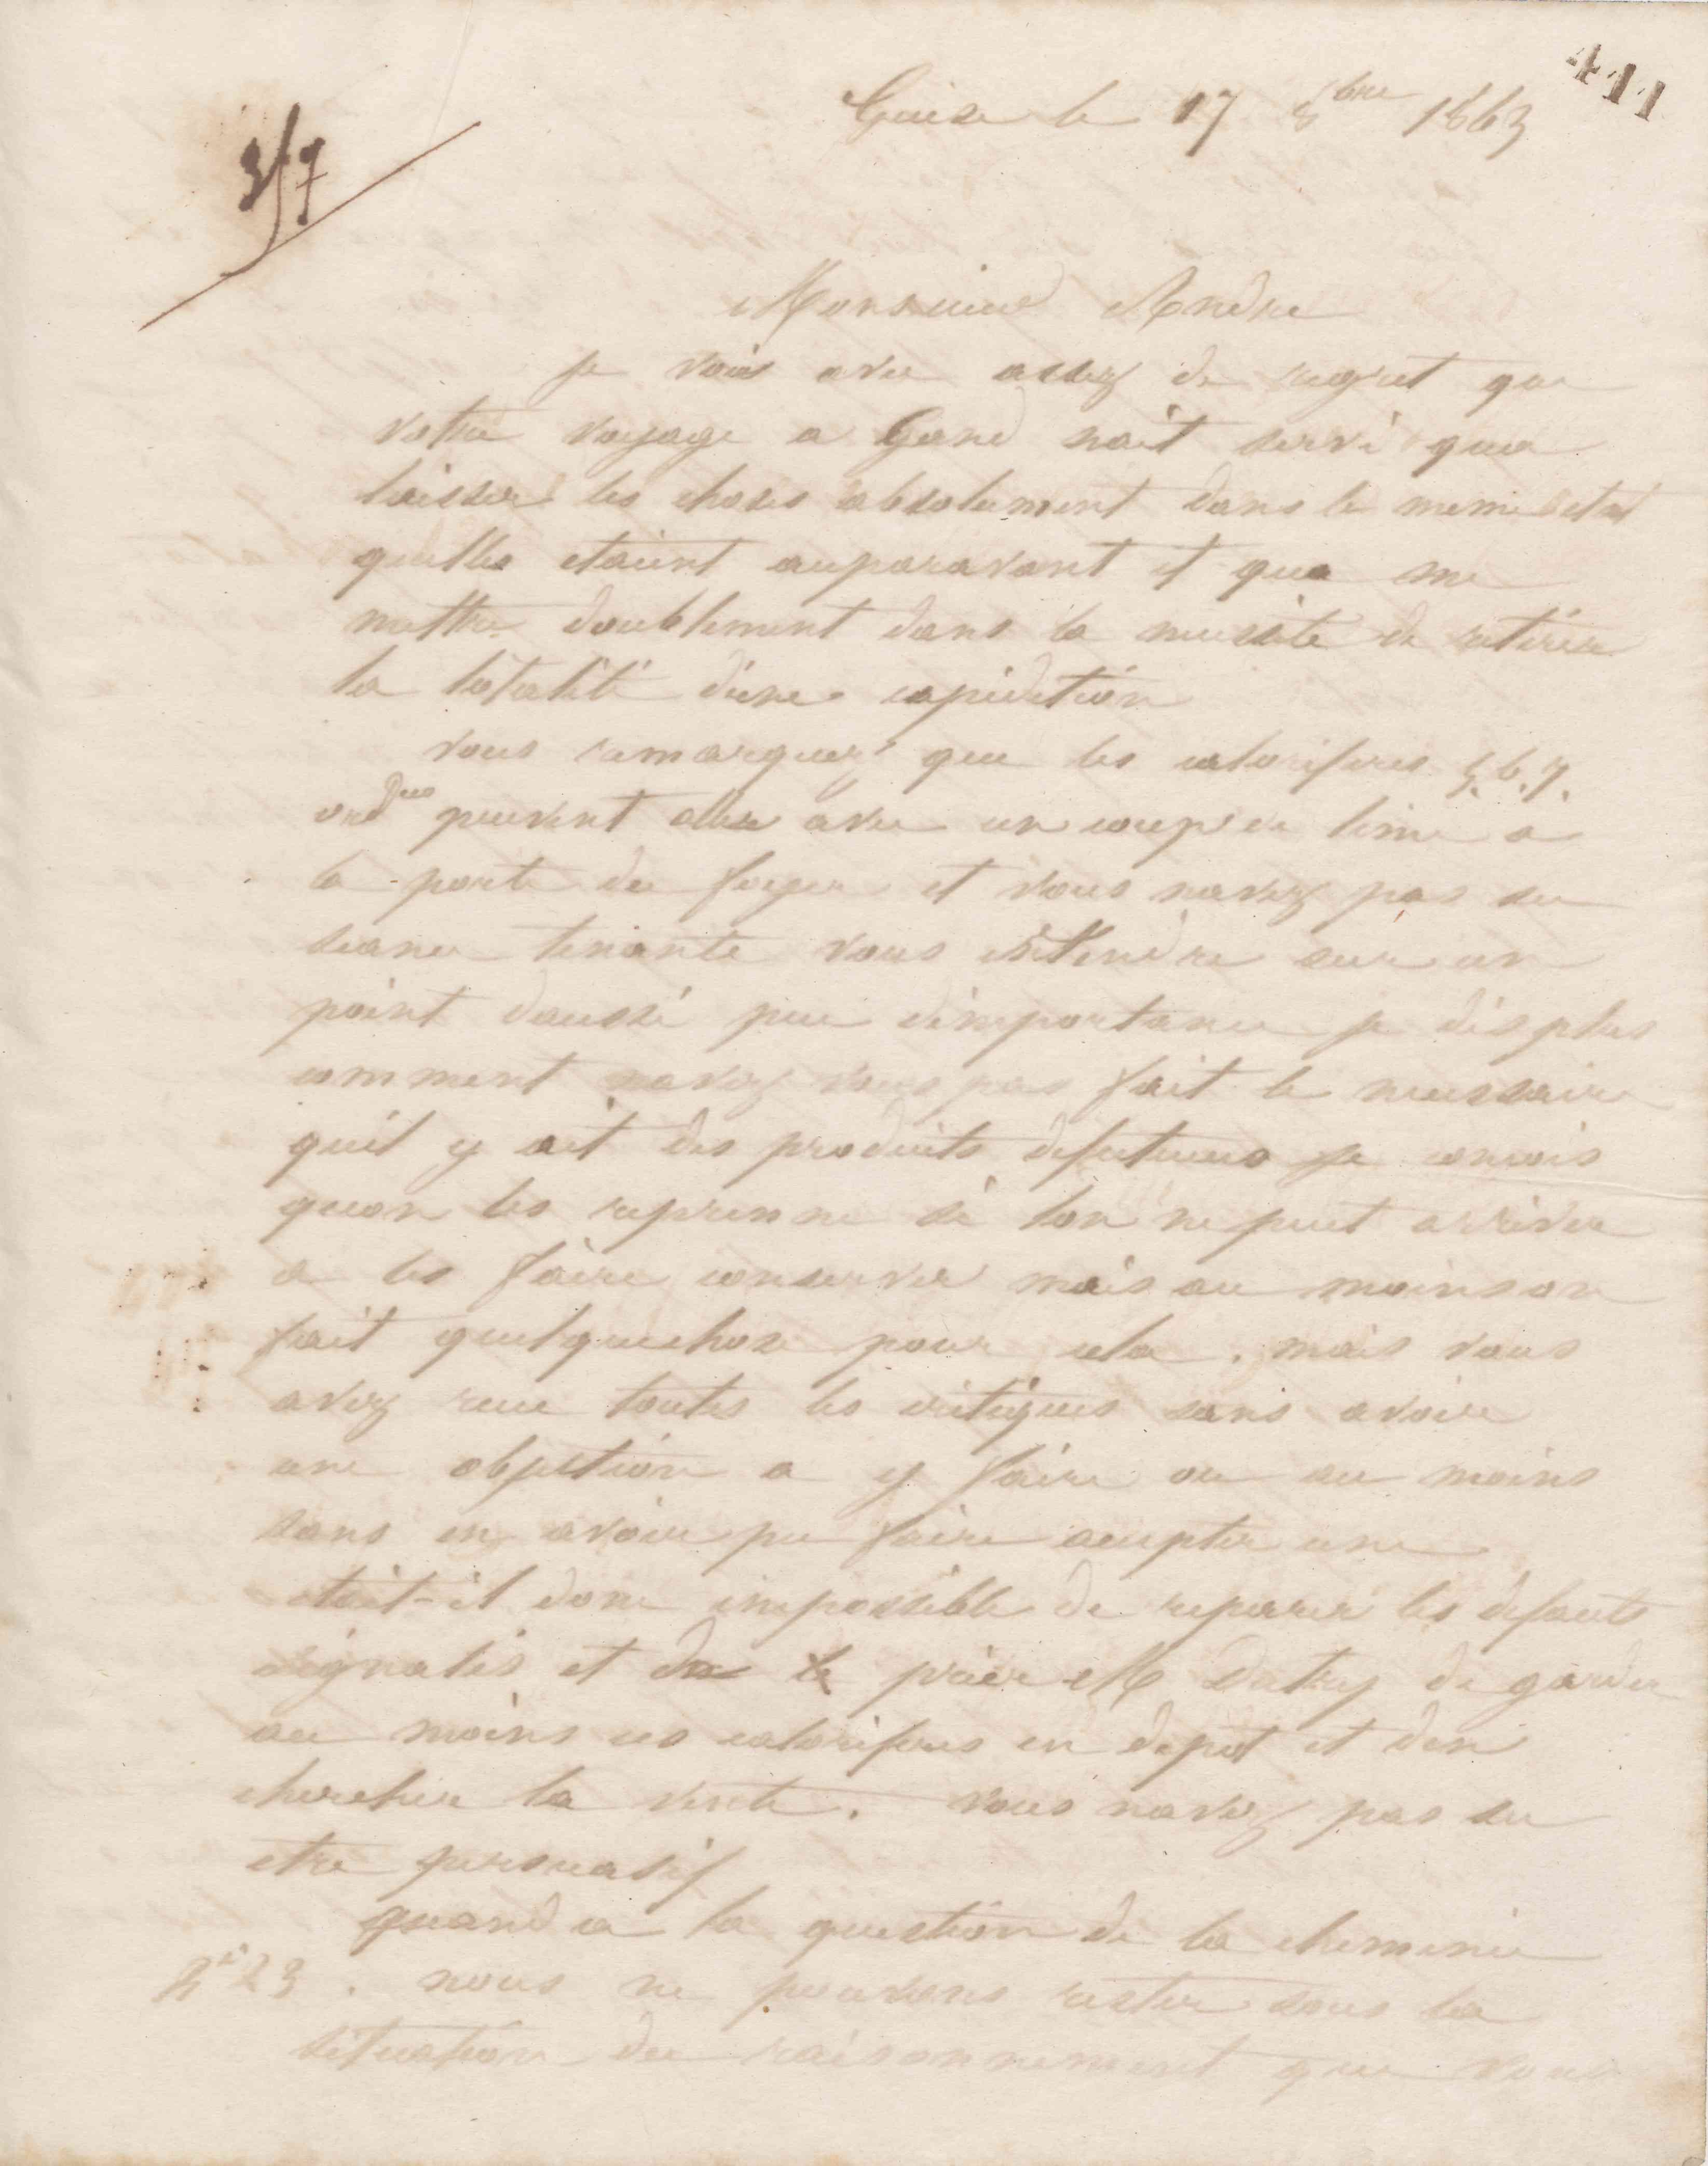 411
Guise le 17 8bre 1863
Monsieur André
je vois avec assez de regret que
votre voyage a Gand nait servi qua
laisser les choses absolument dans le meme etat
quelles etaient auparavant et qua me
mettre doublement dans la necessité de retirer
la totalité dune expedition
vous remarquez que les calorifères 5. 6. 7.
peuvent aller avec un coup de lime a
la porte du foyer et vous navez pas su
seance tenante vous entendre sur un
point daussi peu dimportance je dis plus
comment navez vous pas fait le necessaire
quil y ait des produits defectueux je concois
quon les reprenne si lon ne peut arriver
a les faire conserver mais au moins on
fait quelquechose pour cela. mais vous
avez recu toutes les critiques sans avoir
une objection a y faire ou au moins
sans en avoir pu faire accepter une
etait-il donc impossible de reparer les defauts
signalés et de prier M de garder
au moins ces calorifères en depot et den
chercher la vente. vous navez pas su
etre persuasif
quand a la question de la cheminée
nº 23. nous ne pouvons rester sous la
situation du raisonnement que vous